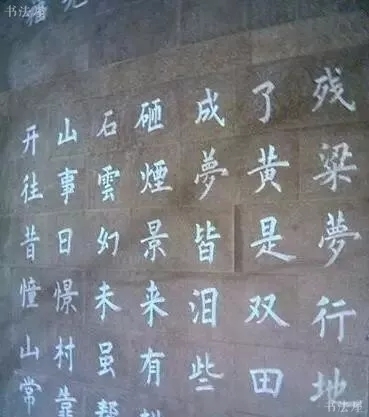 残梁夢行地
了黄是双田
成夢皆泪些
砸煙景来有
石雲幻未虽帮
山事日憬村靠
开往昔憧山常
书法屋
书法屋